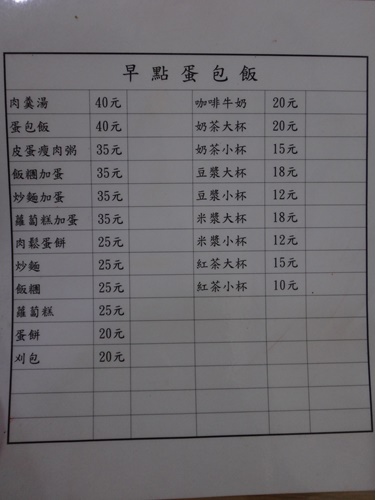 早點蛋包飯
肉羹湯 40元 咖啡牛奶 20元
蛋包飯 40元 奶茶大杯 20元
皮蛋瘦肉粥 35元 奶茶小杯 15元
飯糰加蛋 35元 豆漿大杯 18元
炒麵加蛋 35元 豆漿小杯 12元
蘿蔔糕加蛋 35元 米漿大杯 18元
肉鬆蛋餅 25元 米漿小杯 12元
炒麵 25元 紅茶大杯 15元
飯糰 25元 紅茶小杯 10元
蘿蔔糕 25元
蛋餅 20元
刈包 20元